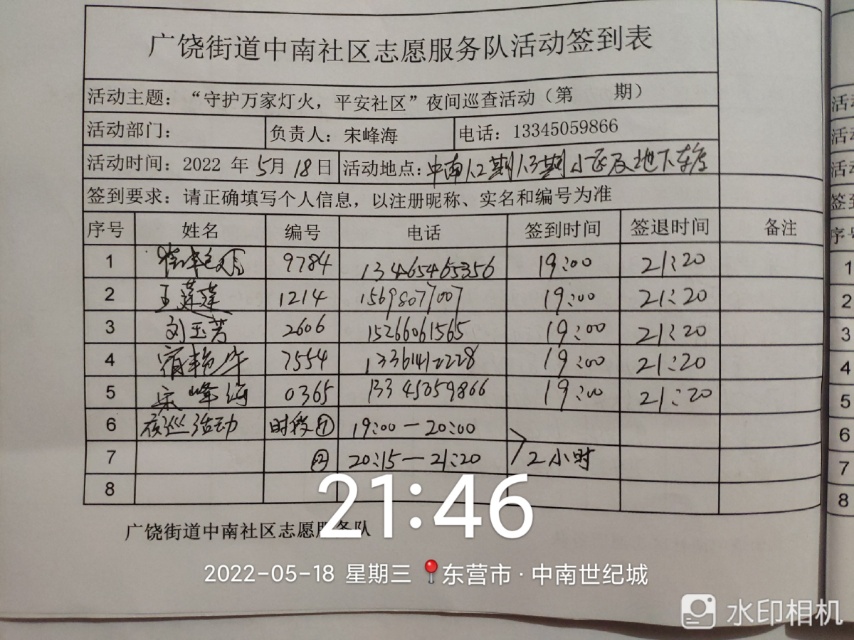 广饶街道中南社区志愿服务队活动签到表
活动主题：“守护万家灯火，平安社区”夜间巡查活动（第 期）
活动部门： 负责人：宋峰海 电话：13345059866
活动时间：2022 年 5月 18日 活动地点：中南1.2期1.3期小区及地下车库
签到要求：请正确填写个人信息，以注册昵称、实名和编号为准
序号 姓名 编号 电话 签到时间 签退时间 备注
1 9784 13465465356 19:00 21:20
2 王莲莲 1214 15698077007 19:00 21:20
3 刘玉芳 2606 15266061565 19:00 21:20
4 7554 19:00 21:20
5 宋峰海 0365 13345059866 19:00 21:20
6 夜巡活动 时段① 19:00—20:00
7 ② 20:15—21:20 2小时
8
广饶街道中南社区志愿服务队
21:46
2022-05-18 星期三 东营市·中南世纪城
水印相机
活动
活动
活动
签到
序号
1
2
3
4
5
6
7
8